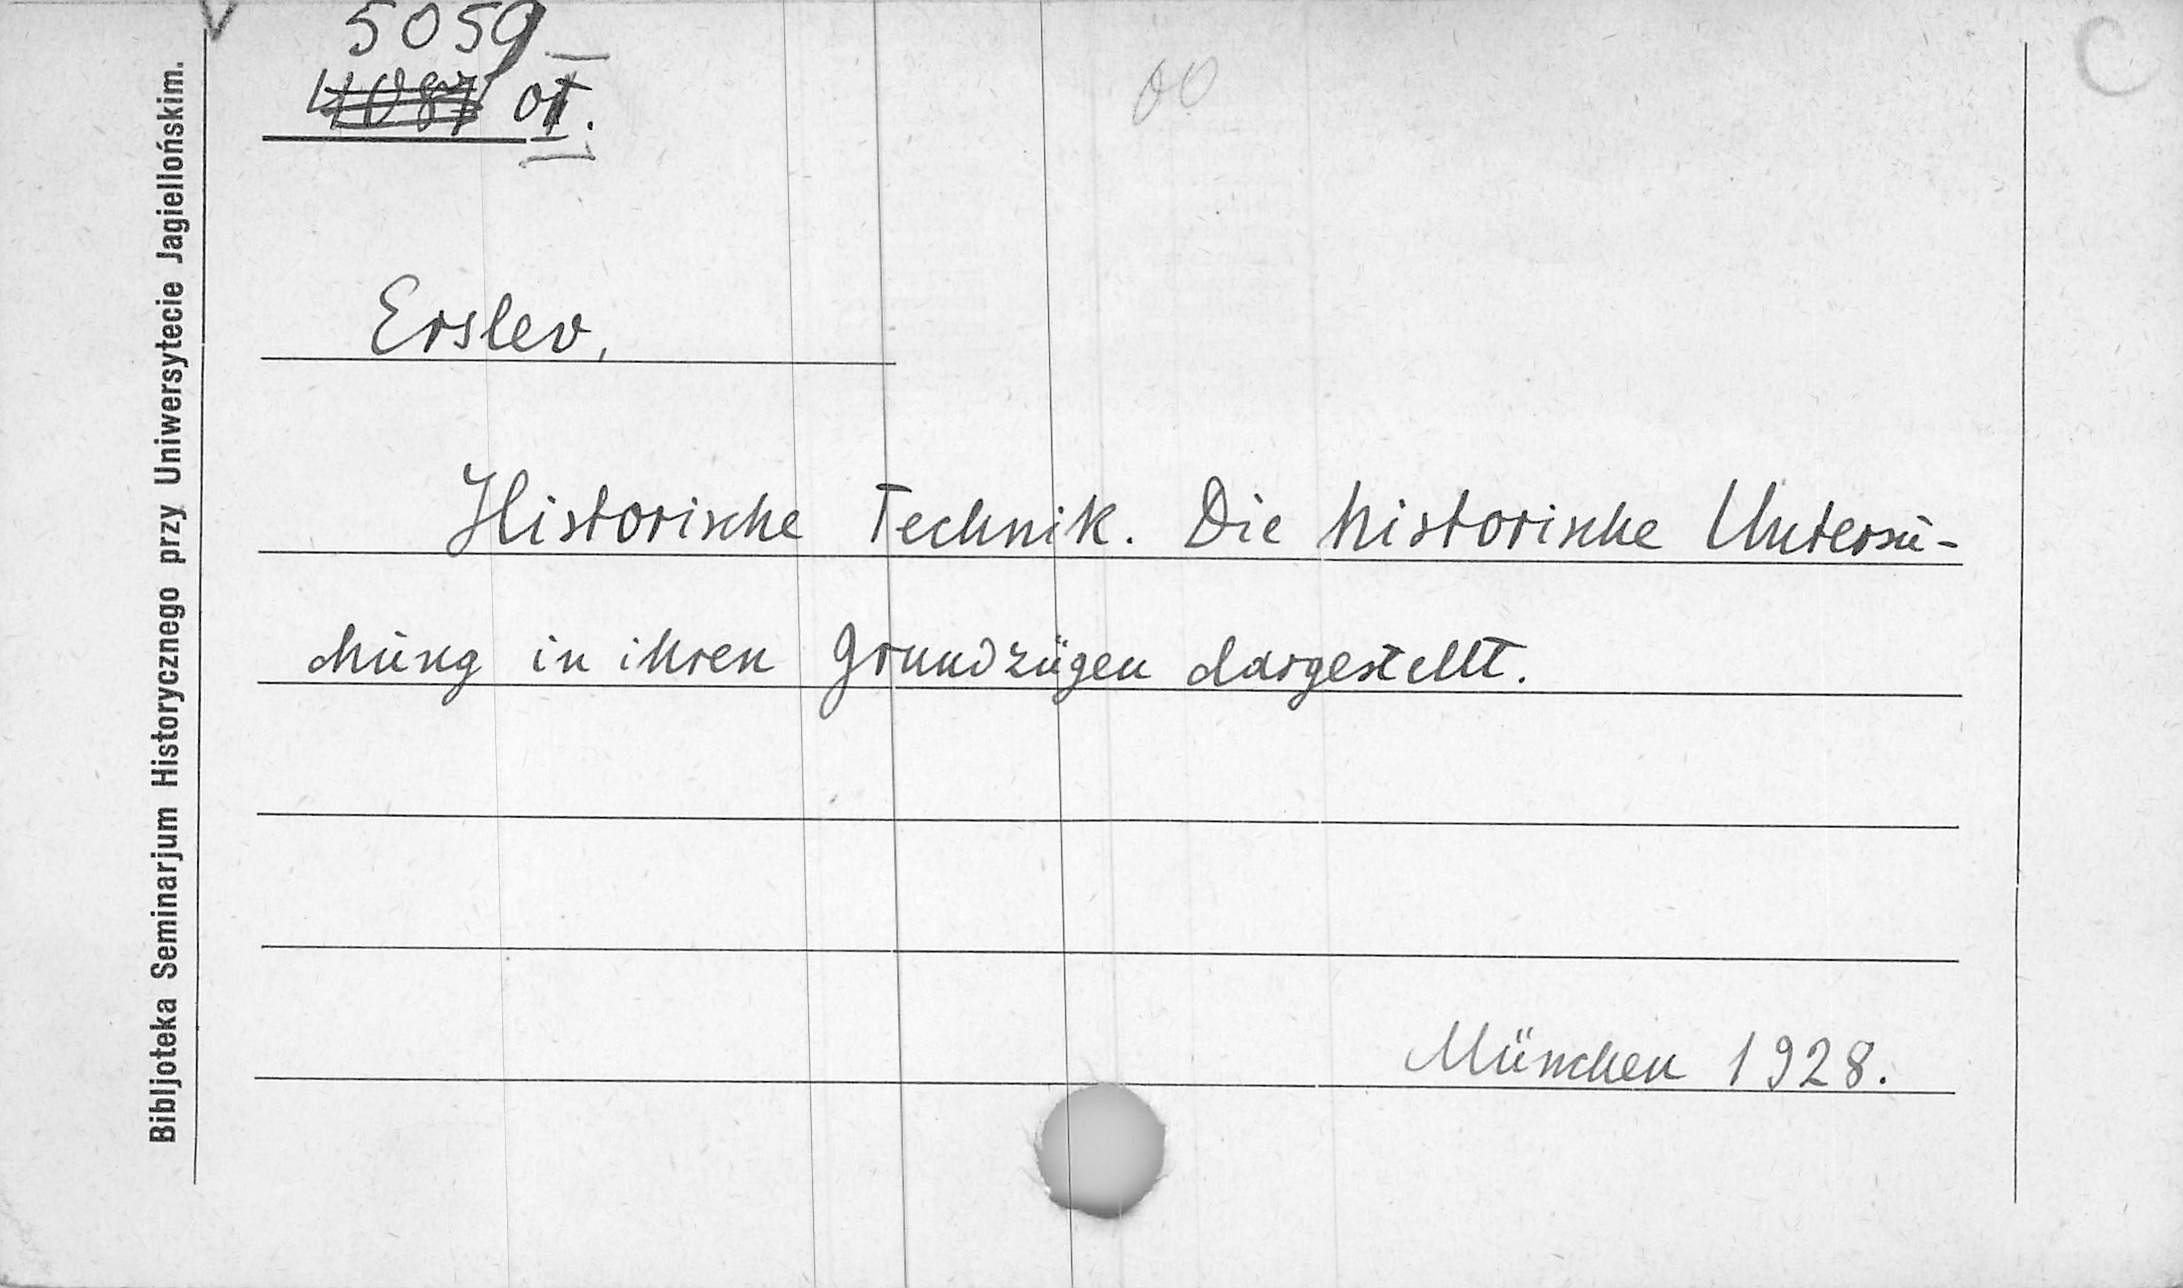 5059
4087 OI.
C
Bibljoteka Seminarjum Historycznego przy Uniwersytecie Jagiellońskim.
Erslev,
Historische Technik. Die historische Untersu-
chung in ihren Grundzügen dargestellt.
München 1928.